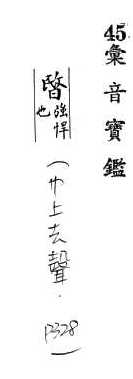 45彙音寶鑑
暋 強悍也
(巾上去聲.
P328